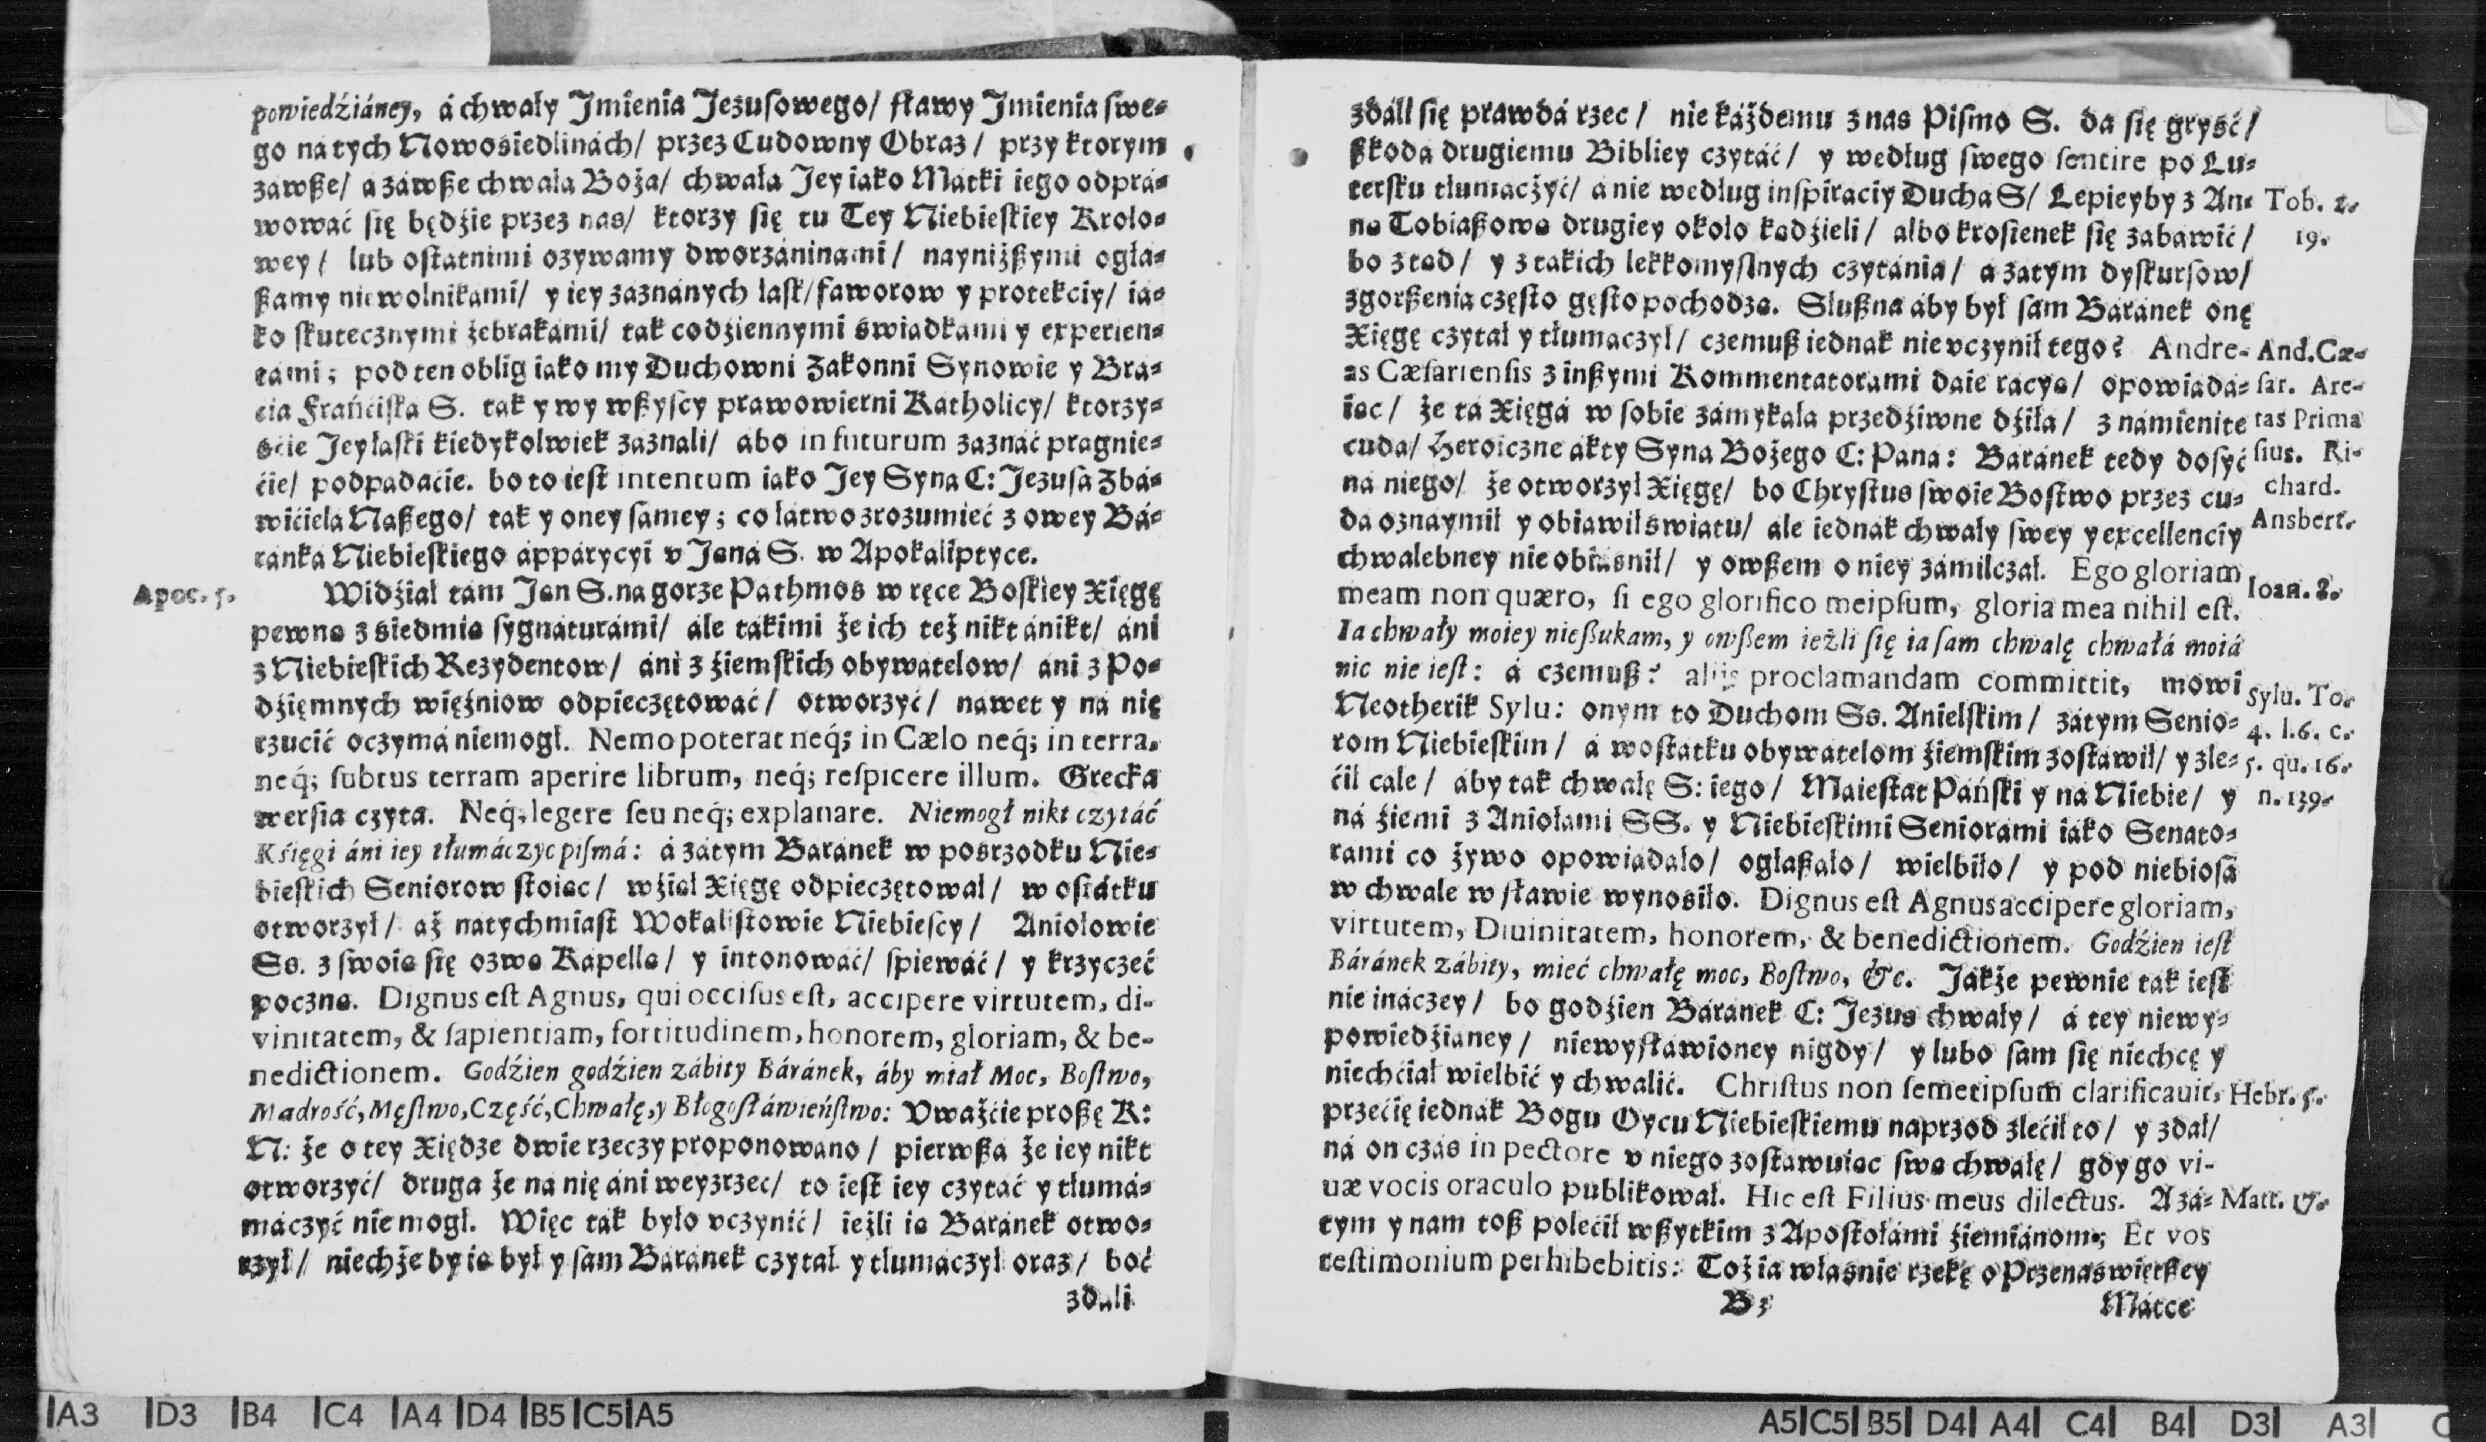 powiedźiáney, á chwały Jmienia Jezusowego/ sławy Jmienia swe-
go na tych Nowosiedlinách/ przez Cudowny Obraz/ przy ktorym
záwße/ a záwße chwała Boża/ chwała Jey iáko Mátki iego odprá-
wowáć się będźie przez nas/ ktorzy się tu Tey Niebieskiey Krolo-
wey/ lub ostatnimi ozywamy dworzáninámi/ nayniżßymi ogła-
ßamy niewolnikami/ y iey zaznánych łask/ faworow y protekciy/ iá-
ko skutecznymi żebrakámi/ ták codźiennymi świadkami y experien-
támi; pod ten oblig iáko my Duchowni Zakonni Synowie y Brá-
cia Fráńciska S. ták y wy wßyscy prawowierni Kátholicy/ ktorzy-
śćie Jey łáski kiedykolwiek záznali/ ábo in futurum záznáć prágnie-
ćie/ podpadaćie. bo to iest intentum iáko Jey Syná C: Jezusá Zbá-
wićielá Náßego/ ták y oney sámey; co łátwo zrozumieć z owey Bá-
ránká Niebieskiego áppárycyi v Janá S. w Apokáliptyce.
Apoc. 5. Widźiał tám Jan S. na gorze Páthmos w ręce Boskiey Xięgę
pewną z siedmią sygnáturámi/ ále tákimi że ich też nikt ánikt/ áni
z Niebieskich Rezydentow/ áni z źiemskich obywatelow/ áni z Po-
dźięmnych więźniow odpieczętowáć/ otworzyć/ náwet y ná nię
rzućić oczymá niemogł. Nemo poterat neq́; in Cælo neq́; in terra.
neq́; subtus terram aperire librum, neq́; respicere illum. Grecka
wersia czyta. Neq́; legere seu neq́; explanare. Niemogł nikt czytáć
Kśięgi áni iey tłumáczyc pismá: á zátym Báránek w posrzodku Nie-
bieskich Seniorow stoiąc/ wźiął Xięgę odpieczętował/ w ostátku
otworzył/ áż nátychmiast Wokálistowie Niebiescy/ Aniołowie
Ss. z swoią się ozwą Kápellą/ y intonowáć/ spiewáć/ y krzyczeć
poczną. Dignus est Agnus, qui occisus est, accipere virtutem, di-
vinitatem, & sapientiam, fortitudinem, honorem, gloriam, & be-
nedictionem. Godźien godźien zábity Báránek, áby miał Moc, Bostwo,
Madrość, Męstwo, Cżęść, Chwałę, y Błogosłáwieństwo: Vważćie proßę K:
N: że o tey Xiędze dwie rzeczy proponowano/ pierwßa że iey nikt
otworzyć/ druga że ná nię áni weyzrzeć/ to iest iey czytáć y tłumá-
máczyć nie mogł. Więc ták było vczynić/ ieżli ią Báránek otwo-
rzył/ niechżeby ią był y sam Báránek czytał y tłumáczył oraz/ boć
zdáli
zdáli się prawdá rzec/ nie káżdemu z nas Pismo S. da się gryść/
ßkodá drugiemu Bibliey czytáć/ y według swego sentire po Lu-
tersku tłumáczyć/ á nie według inspiráciy Duchá S/ Lepieyby z An-
Tob. 2.
ną Tobiaßową drugiey około kądźieli/ álbo krosienek się zábáwić/
19.
bo ztąd/ y z tákich lekkomyslnych czytánia/ á zátym dyskursow/
zgorßenia często gęsto pochodzą. Słußna áby był sam Báránek onę
Xięgę czytał y tłumáczył/ czemuß iednák nie vczynił tego? Andre-
And. Cæ-
as Cæsariensis z inßymi Kommentatorámi dáie rácyą/ opowiáda-
sar. Are-
iąc/ że tá Xięgá w sobie zámykáłá przedźiwne dźiłá/ známienite
tas Prima
cudá/ Heroiczne ákty Syná Bożego C: Páná: Báránek tedy dosyć
sius. Ri-
ná niego/ że otworzył Xięgę/ bo Chrystus swoie Bostwo przez cu-
chard.
dá oznaymił y obiáwił światu/ ále iednák chwały swey y excellenciy
Ansbert.
chwalebney nie obiásnił/ y owßem o niey zámilczał. Ego gloriam
meam non quæro, si ego glorifico meipsum, gloria mea nihil est.
Ioan. 8.
Ia chwały moiey nießukam, y owßem ieżli się ia sam chwalę chwałá moiá
nic nie iest: á czemuß? aliis proclamandam committit, mowi
Neotherik Sylu: onym to Duchom Ss. Anielskim/ zátym Senio-
Sylu. To.
4. l. 6. c.
rom Niebieskim/ á wostátku obywátelom źiemskim zostáwił/ y zle-
5. qu. 16.
ćił cále/ áby ták chwałę S: iego/ Máiestat Páński y ná Niebie/ y
n. 139.
ná źiemi z Aniołámi SS. y Niebieskimi Seniorámi iáko Senato-
rámi co żywo opowiádáło/ ogłaßáło/ wielbiło/ y pod niebiosá
w chwale w sławie wynosiło. Dignus est Agnus accipere gloriam,
virtutem, Diuinitatem, honorem, & benedictionem. Godźien iest
Báránek zábity, mieć chwałę moc, Bostwo, &c. Jákże pewnie ták iest
nie ináczey/ bo godźien Báránek C: Jezus chwały/ á tey niewy-
powiedźianey/ niewysławioney nigdy/ y lubo sam się niechcę y
niechćiał wielbić y chwalić. Christus non semetipsum clarificauit,
Hebr. 5.
przećię iednák Bogu Oycu Niebieskiemu naprzod zlećił to/ y zdał/
ná on czás in pectore v niego zostáwuiąc swą chwałę/ gdy go vi-
uæ vocis oraculo publikował. Hic est Filius meus dilectus. A zá-
Matt. 17.
tym y nam toß polećił wßytkim z Apostołámi źiemiánom; Et vos
testimonium perhibebitis: Toż ia własnie rzekę o Przenaswiętßey
B3
Mátce
A3 D3 B4 C4 A4 D4 B5 C5 A5
A5 C5 B5 D4 A4 C4 B4 D3 A3